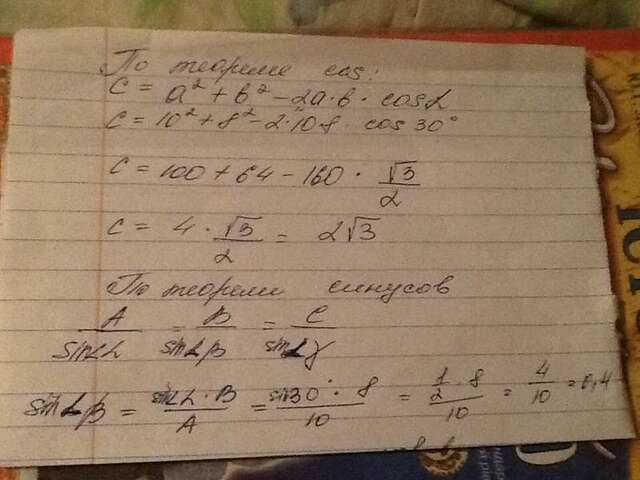 По теореме cos:
c = a² + b² - 2a·b · cos α
c = 10² + 8² - 2·10·8 · cos 30°
c = 100 + 64 - 160 · √3/2
c = 4 · √3/2 = 2√3
По теореме синусов
A/sin∠α = B/sin∠β = C/sin∠γ
sin∠β = sin∠α · B/A = sin30° · 8/10 = 1/2 · 8/10 = 4/10 = 0,4